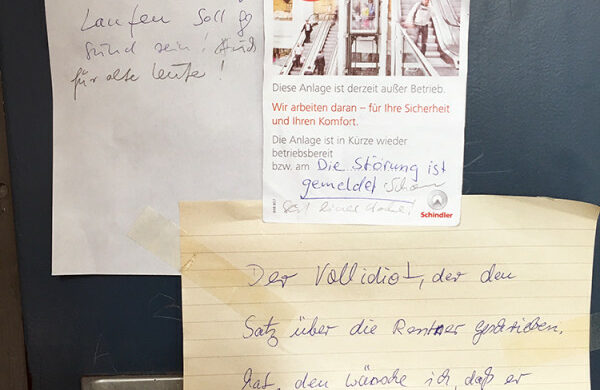 Laufen soll ge
sund sein! Auch
für alte Leute!
Diese Anlage ist derzeit außer Betrieb.
Wir arbeiten daran – für Ihre Sicherheit
und Ihren Komfort.
Die Anlage ist in Kürze wieder
betriebsbereit
bzw. am Die Störung ist
gemeldet Schon
seit einer Woche!
Schindler
Der Vollidiot, der den
Satz über die Rentner geschrieben
hat, den wünsche ich daß er